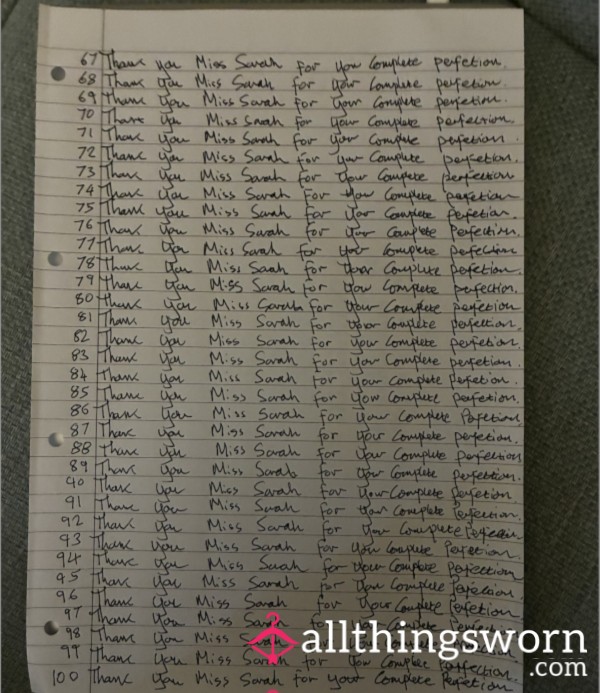 67 Thank you Miss Sarah for your Complete perfetion.
68 Thank you Miss Sarah for your Complete perfetion.
69 Thank you Miss Sarah for your Complete perfetion.
70 Thank you Miss Sarah for your Complete perfection.
71 Thank you Miss Sarah for your Complete perfetion.
72 Thank you Miss Sarah for your Complete perfetion.
73 Thank you Miss Sarah for your Complete perfection
74 Thank you Miss Sarah for your Complete perfetion.
75 Thank you Miss Sarah for your Complete perfetion.
76 Thank you Miss Sarah for your Complete perfection.
77 Thank you Miss Sarah for your Complete perfection
78 Thank you Miss Sarah for your Complete perfetion.
79 Thank you Miss Sarah for your Complete perfection.
80 Thank you Miss Sarah for your Complete perfetion
81 Thank you Miss Sarah for your Complete perfetion.
82 Thank you Miss Sarah for your Complete perfection.
83 Thank you Miss Sarah for your Complete perfetion.
84 Thank you Miss Sarah for your Complete perfetion.
85 Thank you Miss Sarah for your Complete perfetion.
86 Thank you Miss Sarah for your Complete Pofetion
87 Thank you Miss Sarah for your Complete perfetion.
88 Thank you Miss Sarah for your Complete perfection
89 Thank you Miss Sarah for your Complete perfection.
90 Thank you Miss Sarah for your Complete Perfetion.
91 Thank you Miss Sarah for your Complete Perfection.
92 Thank you Miss Sarah for your Complete Perfection
93 Thank you Miss Sarah for your Complete Perfetion.
94 Thank you Miss Sarah for your Complete Perfection
95 Thank you Miss Sarah for your Complete Perfection.
96 Thank you Miss Sarah for your Complete Perfetion.
97 Thank you Miss Sarah for your Complete
98 Thank you Miss
99 Thank you Miss Sarah for your Complete Perfection.
100 Thank you Miss Sarah for your Complete Perfetion
allthingsworn
.com